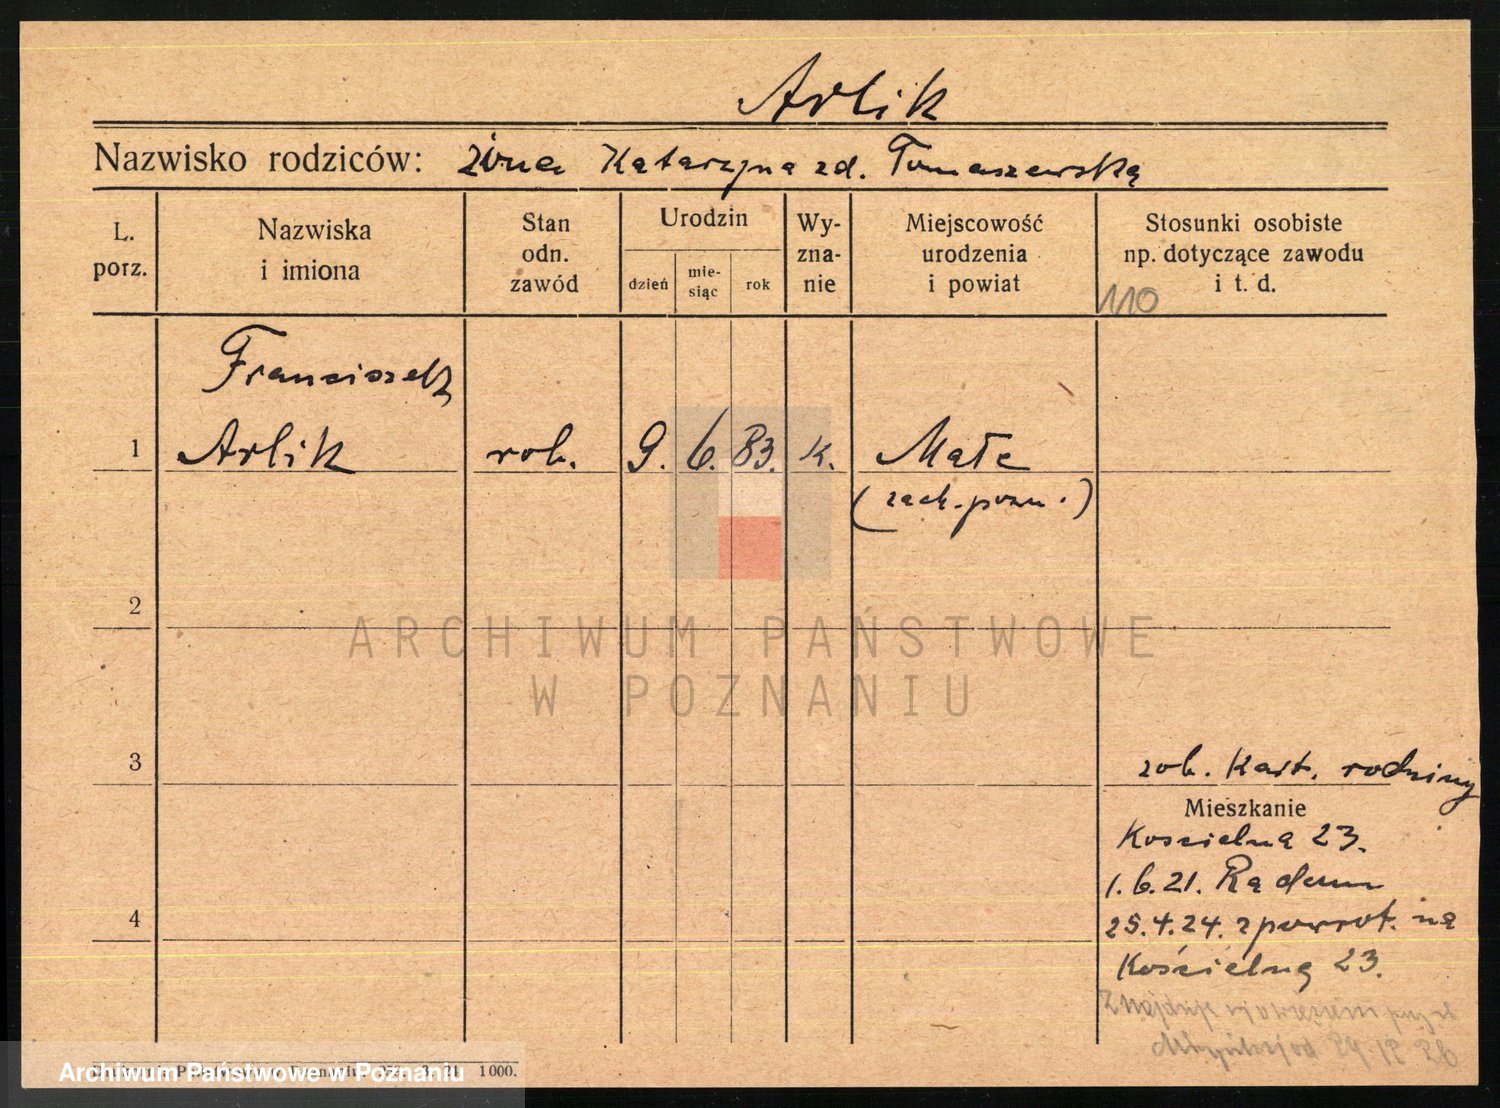 Arlik
Nazwisko rodziców: żona Katarzyna zd. Tomaszewska
L. porz.
Nazwiska i imiona
Stan odn. zawód
Urodzin
dzień
mie- siąc
rok
Wy- zna- nie
Miejscowość urodzenia i powiat
Stosunki osobiste np. dotyczące zawodu i t. d.
110
Franciszek
1 Arlik rob. 9. 6. 83. k. Małe
(zach. pozn.)
2
ARCHIWUM PAŃSTWOWE
W POZNANIU
3
zob. Kart. rodziny
Mieszkanie
Kościelna 23.
1.6.21. Radom
4
25.4.24. z powrot. na
Kościelną 23.
Znajduje się w więzieniu
29 12 26
Archiwum Państwowe w Poznaniu
1000.